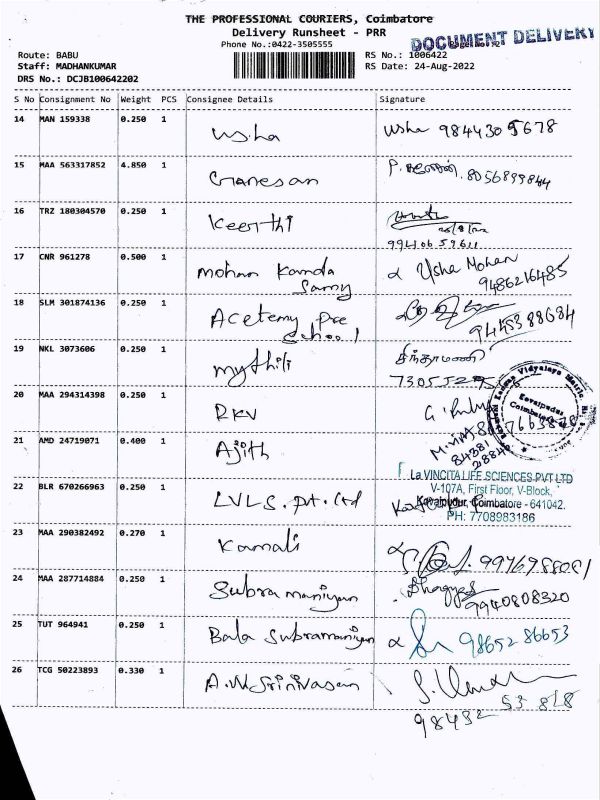 THE PROFESSIONAL COURIERS, Coimbatore
Delivery Runsheet - PRR
Phone No.:0422-3505555
DOCUMENT DELIVERY
Route: BABU
Staff: MADHANKUMAR
DRS No.: DCJB100642202
RS No.: 1006422
RS Date: 24-Aug-2022
S No Consignment No Weight PCS Consignee Details Signature
14 MAN 159338 0.250 1 Usha Usha 9844305678
15 MAA 563317852 4.850 1 Ganesan P. கணேசன். 8056899844
16 TRZ 180304570 0.250 1 Keerthi
9940659611
17 CNR 961278 0.500 1 Mohan Kanda Samy Usha Mohan
9486216485
18 SLM 301874136 0.250 1 Acetemy Pre School
9445388684
19 NKL 3073606 0.250 1 Mythili சிந்தாமணி
20 MAA 294314398 0.250 1 RKV
21 AMD 24719071 0.400 1 Ajith
84381
28846
La VINCITA LIFE SCIENCES PVT LTD
V-107A, First Floor, V-Block,
Kovaipudur, Coimbatore - 641042.
PH: 7708983186
22 BLR 670266963 0.250 1 LVLS. Pvt. Ltd
23 MAA 290382492 0.270 1 Kamali
24 MAA 287714884 0.250 1 Subramaniyan
9940808320
25 TUT 964941 0.250 1 Bala Subramaniyan 9865286653
26 TCG 50223893 0.330 1 A.V.Srinivasan
98432 53 818